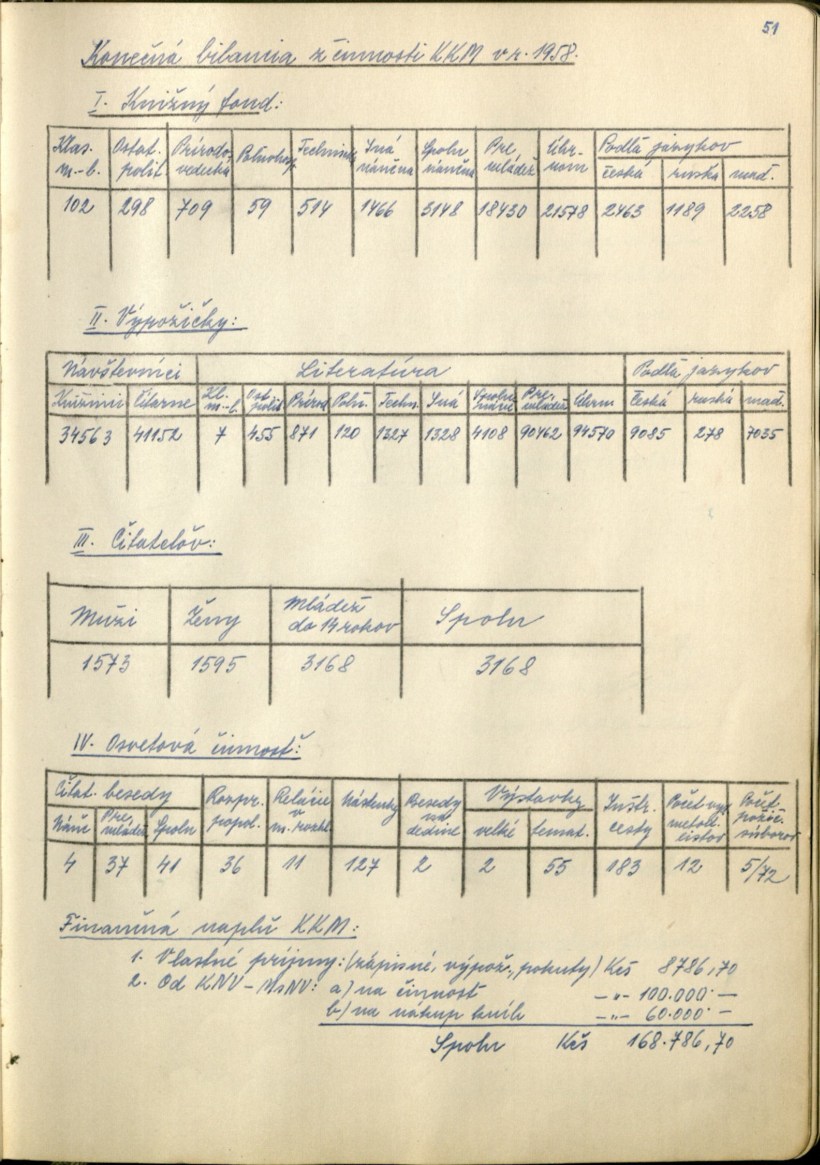 51
Konečná bilancia z činnosti KKM v r. 1958.
I. Knižný fond:
Klas. m.-l. Ostat. polit. Prírodo- vedecká Poľnohosp. Technická Iná náučná Spolu náučná Pre mládež Úhr- nom Podľa jazykov
česká ruská maď.
102 298 709 59 514 1466 3148 18430 21578 2463 1189 2258
II. Výpožičky:
Návštevníci Literatúra Podľa jazykov
Knižnici Čitárne Kl. m.-l. Ost. polit. Prírod. Poľn. Techn. Iná Spolu náuč. Pre mládež Úhrn česká ruská maď.
34563 41152 7 455 871 120 1327 1328 4108 90462 94570 9085 278 7035
III. Čitateľov:
Muži Ženy Mládež do 14 rokov Spolu
1573 1595 3168 3168
IV. Osvetová činnosť:
Čitat. besedy Rozpr. popol. Relácie v m. rozhl. Nástenky Besedy na dedine Výstavky Inštr. cesty Počet vyd. metod. listov Počet požič. súborov
Náuč Pre mládež Spolu veľké temat.
4 37 41 36 11 127 2 2 55 183 12 5/72
Finančná náplň KKM:
1. Vlastné príjmy: (zápisné, výpož., pokuty) Kčs 8786,70
2. Od KNV - MsNV: a) na činnosť -"- 100.000·-
b) na nákup kníh -"- 60.000·-
Spolu Kčs 168.786,70